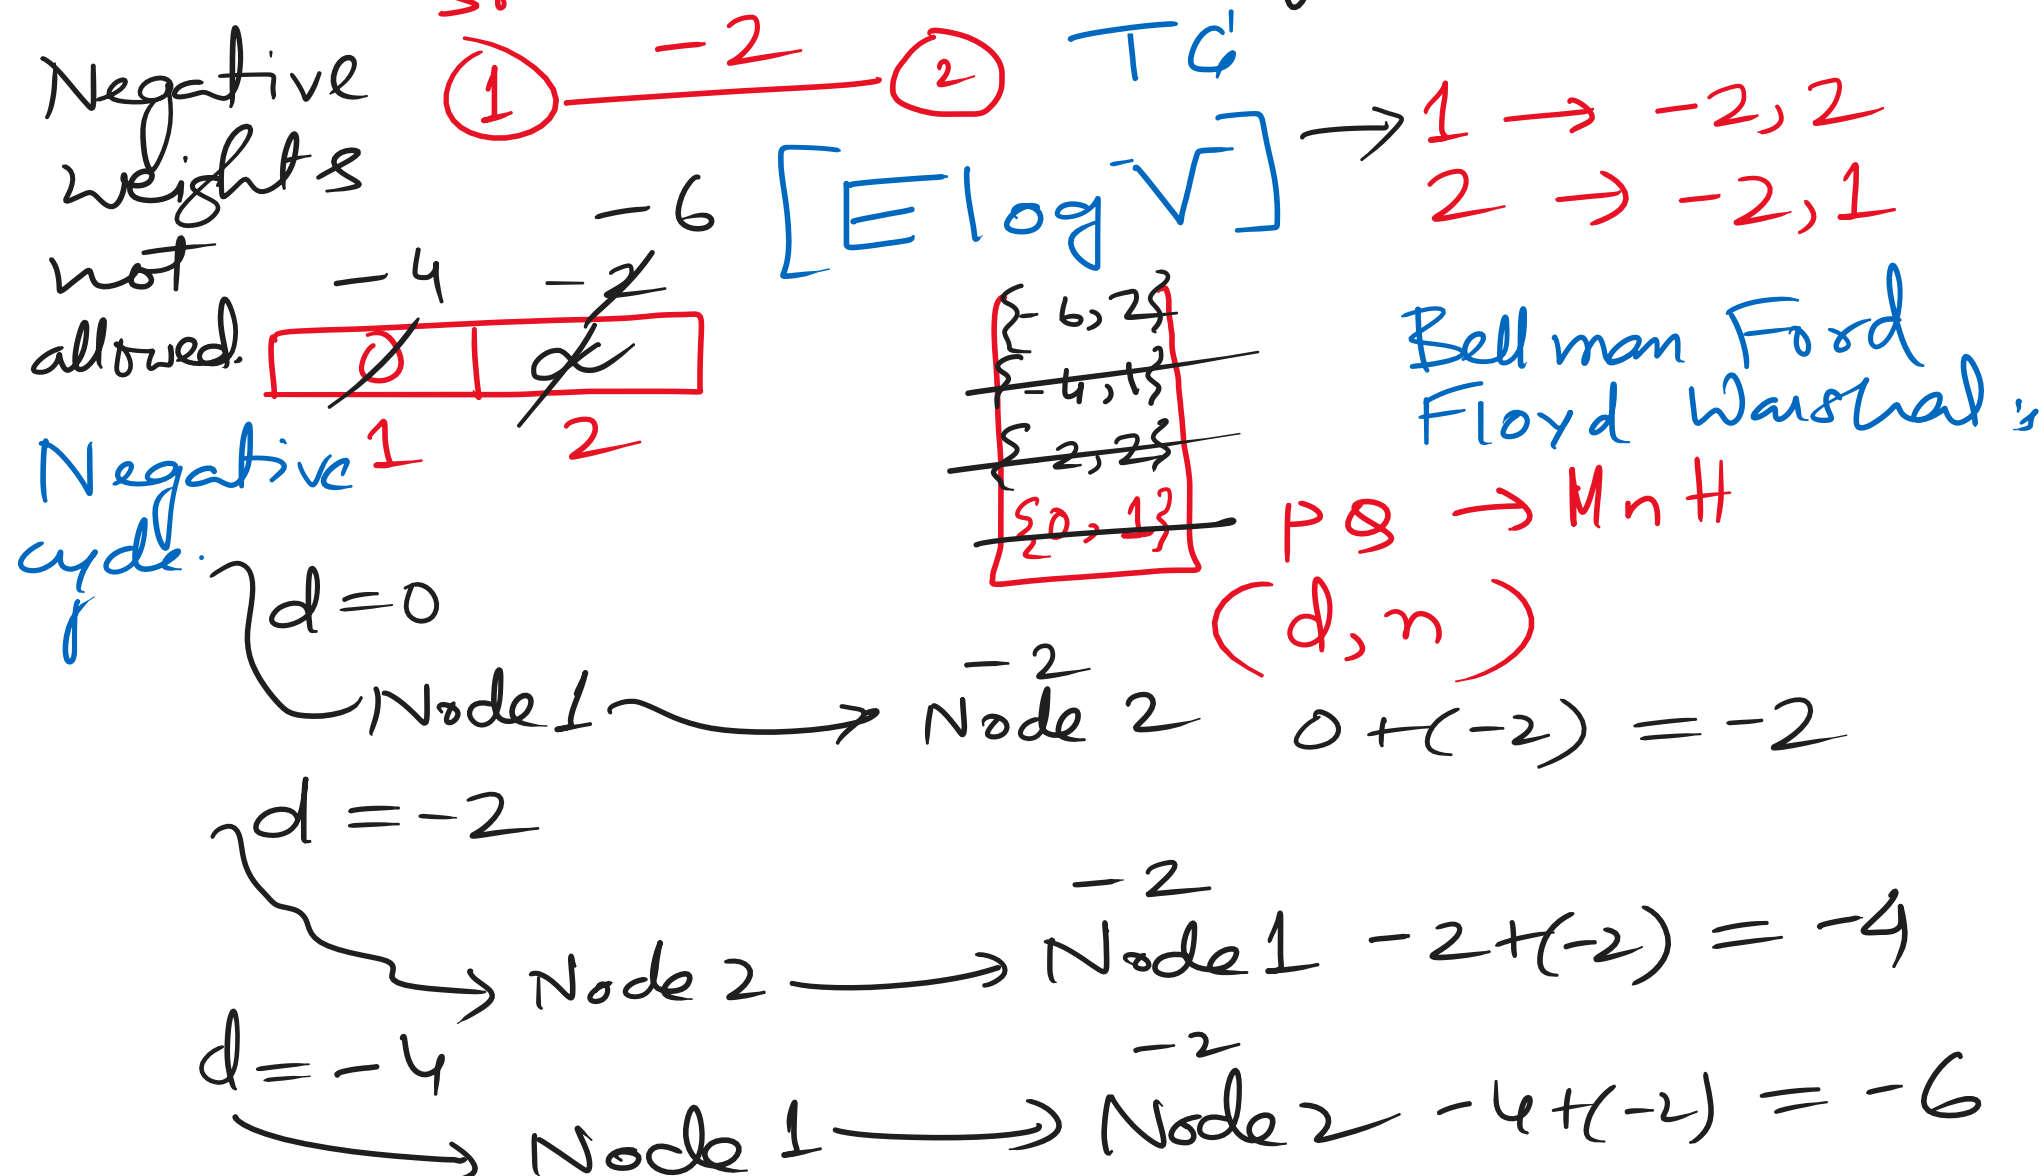 Negative
weights
not
allowed.
Negative
cycle.
1 -2 2
TC
[E log V]
→ 1 → -2, 2
2 → -2, 1
-4 -2 -6
0 α
1 2
{-6, 2}
{-4, 1}
{-2, 2}
{0, 1}
Bellman Ford
Floyd Warshal's
PQ → MnH
(d, n)
d = 0
Node 1 → -2 Node 2 0 + (-2) = -2
d = -2
→ Node 2 → -2 Node 1 -2 + (-2) = -4
d = -4
→ Node 1 → -2 Node 2 -4 + (-2) = -6